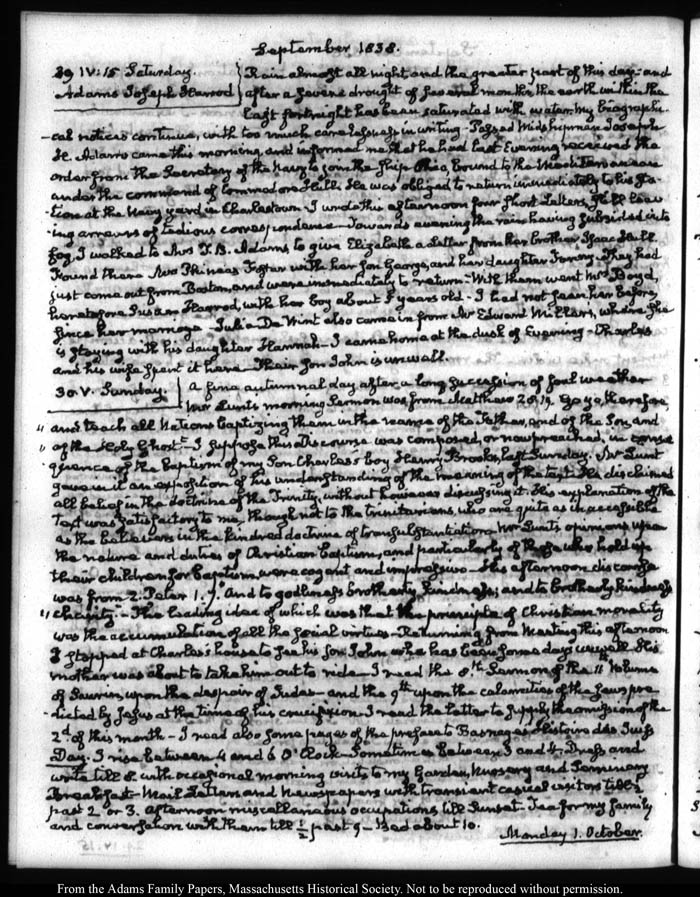 September 1838.
29. IV:15 Saturday. Rain almost all night and the greater part of this day—and
Adams Joseph Harrod after a severe drought of several months the earth within the
last fortnight has been saturated with water. My biographi-
-cal notices continue, with too much carelessness in writing—Passed Midshipman Joseph
H. Adams came this morning, and informed me that he had last Evening received the
order from the Secretary of the Navy to join the Ship Ohio, bound to the Mediterranean
under the command of Commodore Hull. He was obliged to return immediately to his Sta-
-tion at the Navy yard in Charlestown—I wrote this afternoon four short Letters, still leav-
-ing arrears of tedious correspondence—Towards evening the rain having subsided into
fog, I walked to Mrs T. B. Adams, to give Elizabeth a Letter from her brother Isaac Hull.
Found there Mrs Phineas Foster with her son George, and her daughter Fanny—They had
just come out from Boston, and were immediately to return—With them went Mrs Boyd,
heretofore Susan Harrod, with her boy about 5 years old—I had not seen her before,
since her marriage—Julia De Wint also came in from Mr Edward Miller's, where she
is staying with his daughter Hannah—I came home at the dusk of Evening—Charles
and his wife spent it here—Their son John is unwell.
30. V. Sunday. A fine autumnal day after a long succession of foul weather
Mr Lunt's morning Sermon was from Matthew 28.19. Go ye, therefore,
" and teach all Nations baptizing them in the name of the Father, and of the Son, and
" of the Holy Ghost"—I suppose this Discourse was composed, or now preached, in conse-
quence of the baptism of my Son Charles's boy Henry Brooks, last Sunday. Mr Lunt
gave in it an exposition of his understanding of the meaning of the text. He disclaimed
all belief in the doctrine of the Trinity, without however discussing it. His explanation of the
Text was satisfactory to me, though not to the trinitarians, who are quite as inaccessible
as the believers in the kindred doctrine of transubstantiation. Mr Lunt's opinions upon
the nature and duties of Christian baptism, and particularly of those who hold up
their children for baptism, were cogent and impressive—His afternoon discourse
was from 2. Peter 1.7. And to godliness brotherly kindness; and to brotherly kindness
" charity"—The leading idea of which was that the principle of Christian morality
was the accumulation of all the social virtues—Returning from Meeting this afternoon
I stopped at Charles's house to see his son John who has been some days unwell. His
mother was about to take him out to ride—I read the 8.th Sermon of the 11 Volume
of Saurin, upon the despair of Judas—and the 9th upon the calamities of the Jews pre-
-dicted by Jesus at the time of his crucifixion—I read the latter to supply the omission of the
2d of this month—I read also some pages of the preface to Basnage's Histoire des Juifs
Day. I rise between 4 and 6 O'Clock—Sometimes between 3 and 4. Dress and
write till 8. with occasional morning visits to my Garden, Nursery and Seminary
Breakfast—Mail Letters and Newspapers with transient casual visitors till 2
past 2 or 3. Afternoon miscellaneous occupations till Sunset—Tea for my family
and conversation with them till ½ past 9—Bed about 10.
Monday 1. October.
From the Adams Family Papers, Massachusetts Historical Society. Not to be reproduced without permission.